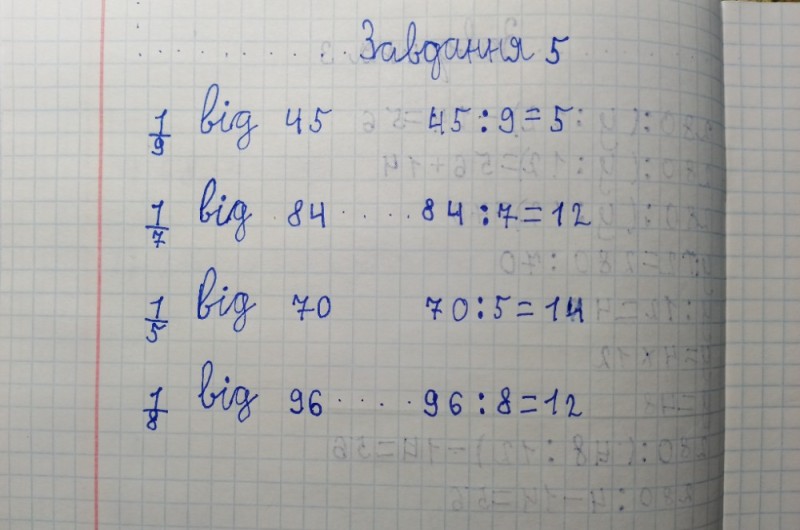 Завдання 5
1/9 від 45 45:9=5
1/7 від 84 84:7=12
1/5 від 70 70:5=14
1/8 від 96 96:8=12